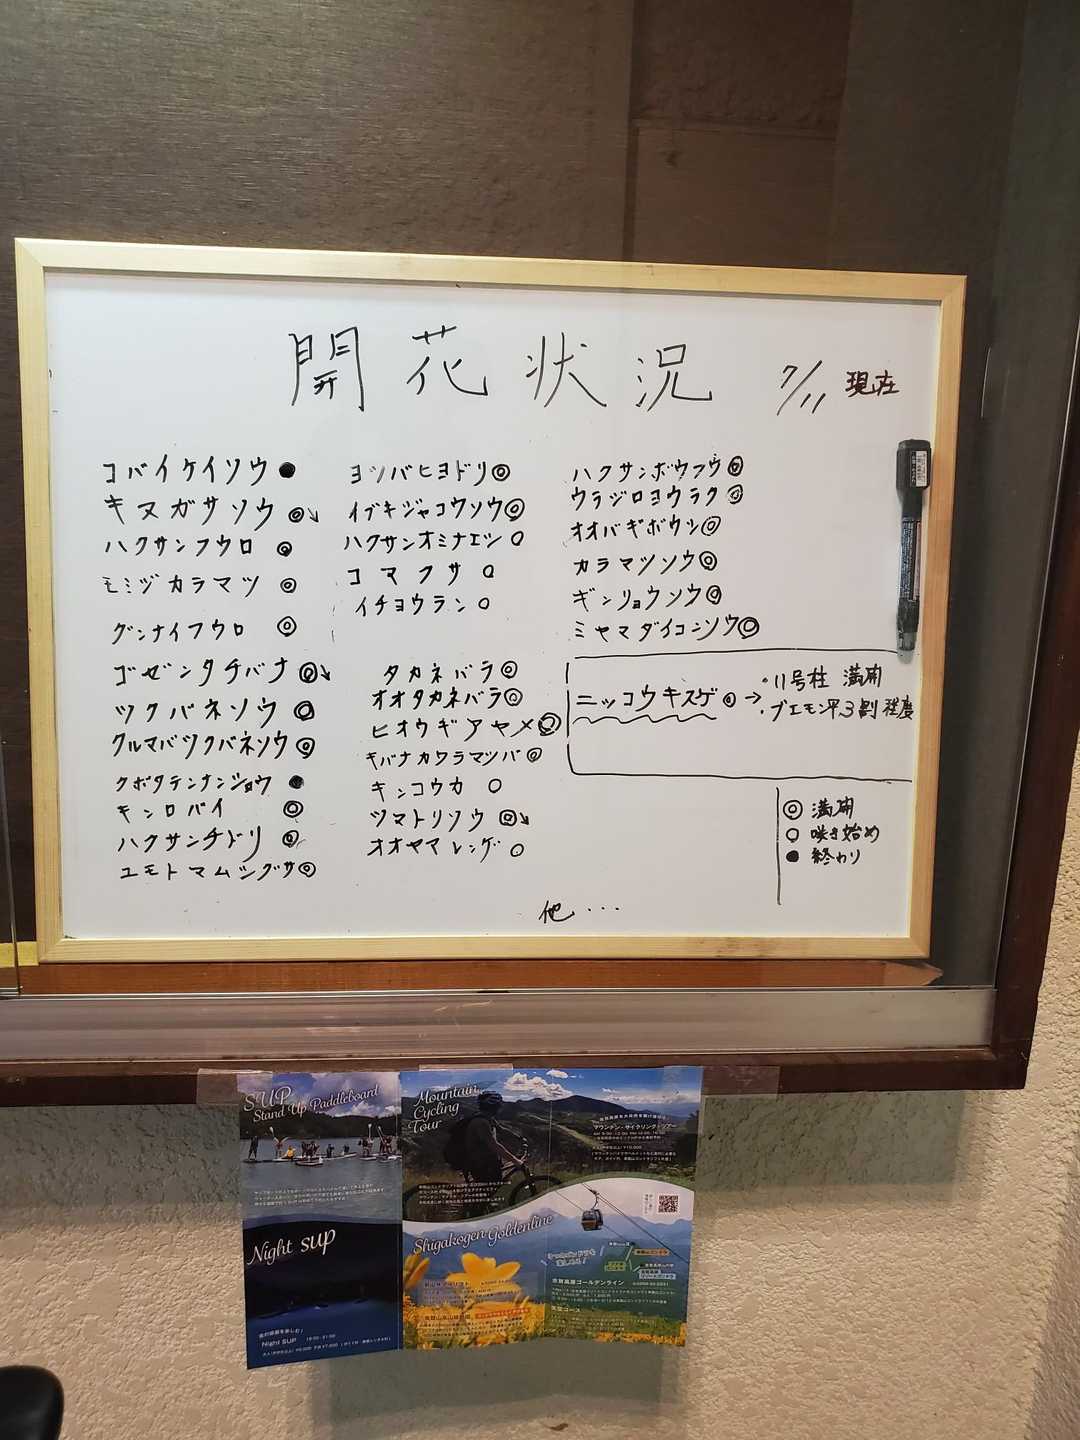 開花状況 7/11 現在
コバイケイソウ●
キヌガサソウ◎↘
ハクサンフウロ ◎
モミジカラマツ ◎
グンナイフウロ ◎
ゴゼンタチバナ◎↘
ツクバネソウ ◎
クルマバツクバネソウ◎
クボタテンナンショウ ●
キンロバイ ◎
ハクサンチドリ ◎
ユモトマムシグサ◎
ヨツバヒヨドリ◎
イブキジャコウソウ◎
ハクサンオミナエシ ○
コマクサ ○
イチョウラン ○
タカネバラ◎
オオタカネバラ◎
ヒオウギアヤメ◎
キバナカワラマツバ◎
キンコウカ ○
ツマトリソウ◎↘
オオヤマレンゲ ○
ハクサンボウフウ◎
ウラジロヨウラク◎
オオバギボウシ◎
カラマツソウ◎
ギンリョウソウ◎
ミヤマダイコンソウ◎
ニッコウキスゲ◎→
・11号柱 満開
・ブエモン平3割程度
◎ 満開
○ 咲き始め
● 終わり
他…
SUP
Stand Up Paddleboard
Night SUP
Night SUP
Mountain
Cycling
Tour
マウンテン・サイクリング・ツアー
Shigakogen Goldenline
志賀高原ゴールデンライン